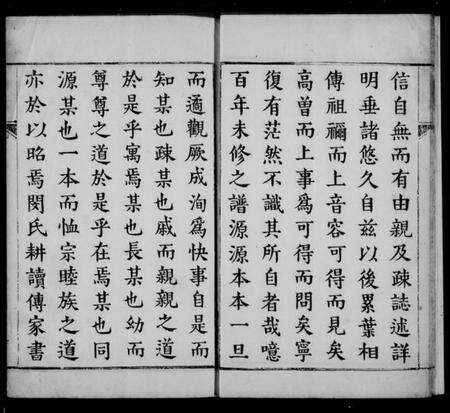 信自無而有由親及疎誌述詳
明垂諸悠久自兹以後累葉相
傳祖禰而上音容可得而見矣
高曽而上事為可得而問矣寧
復有茫然不識其所自者哉噫
百年未修之譜源源本本一旦
而適觀厥成洵為快事自是而
知某也疎某也戚而親親之道
於是乎寓焉某也長某也幼而
尊尊之道於是乎在焉某也同
源某也一本而恤宗睦族之道
亦於以昭焉閔氏耕讀傳家書